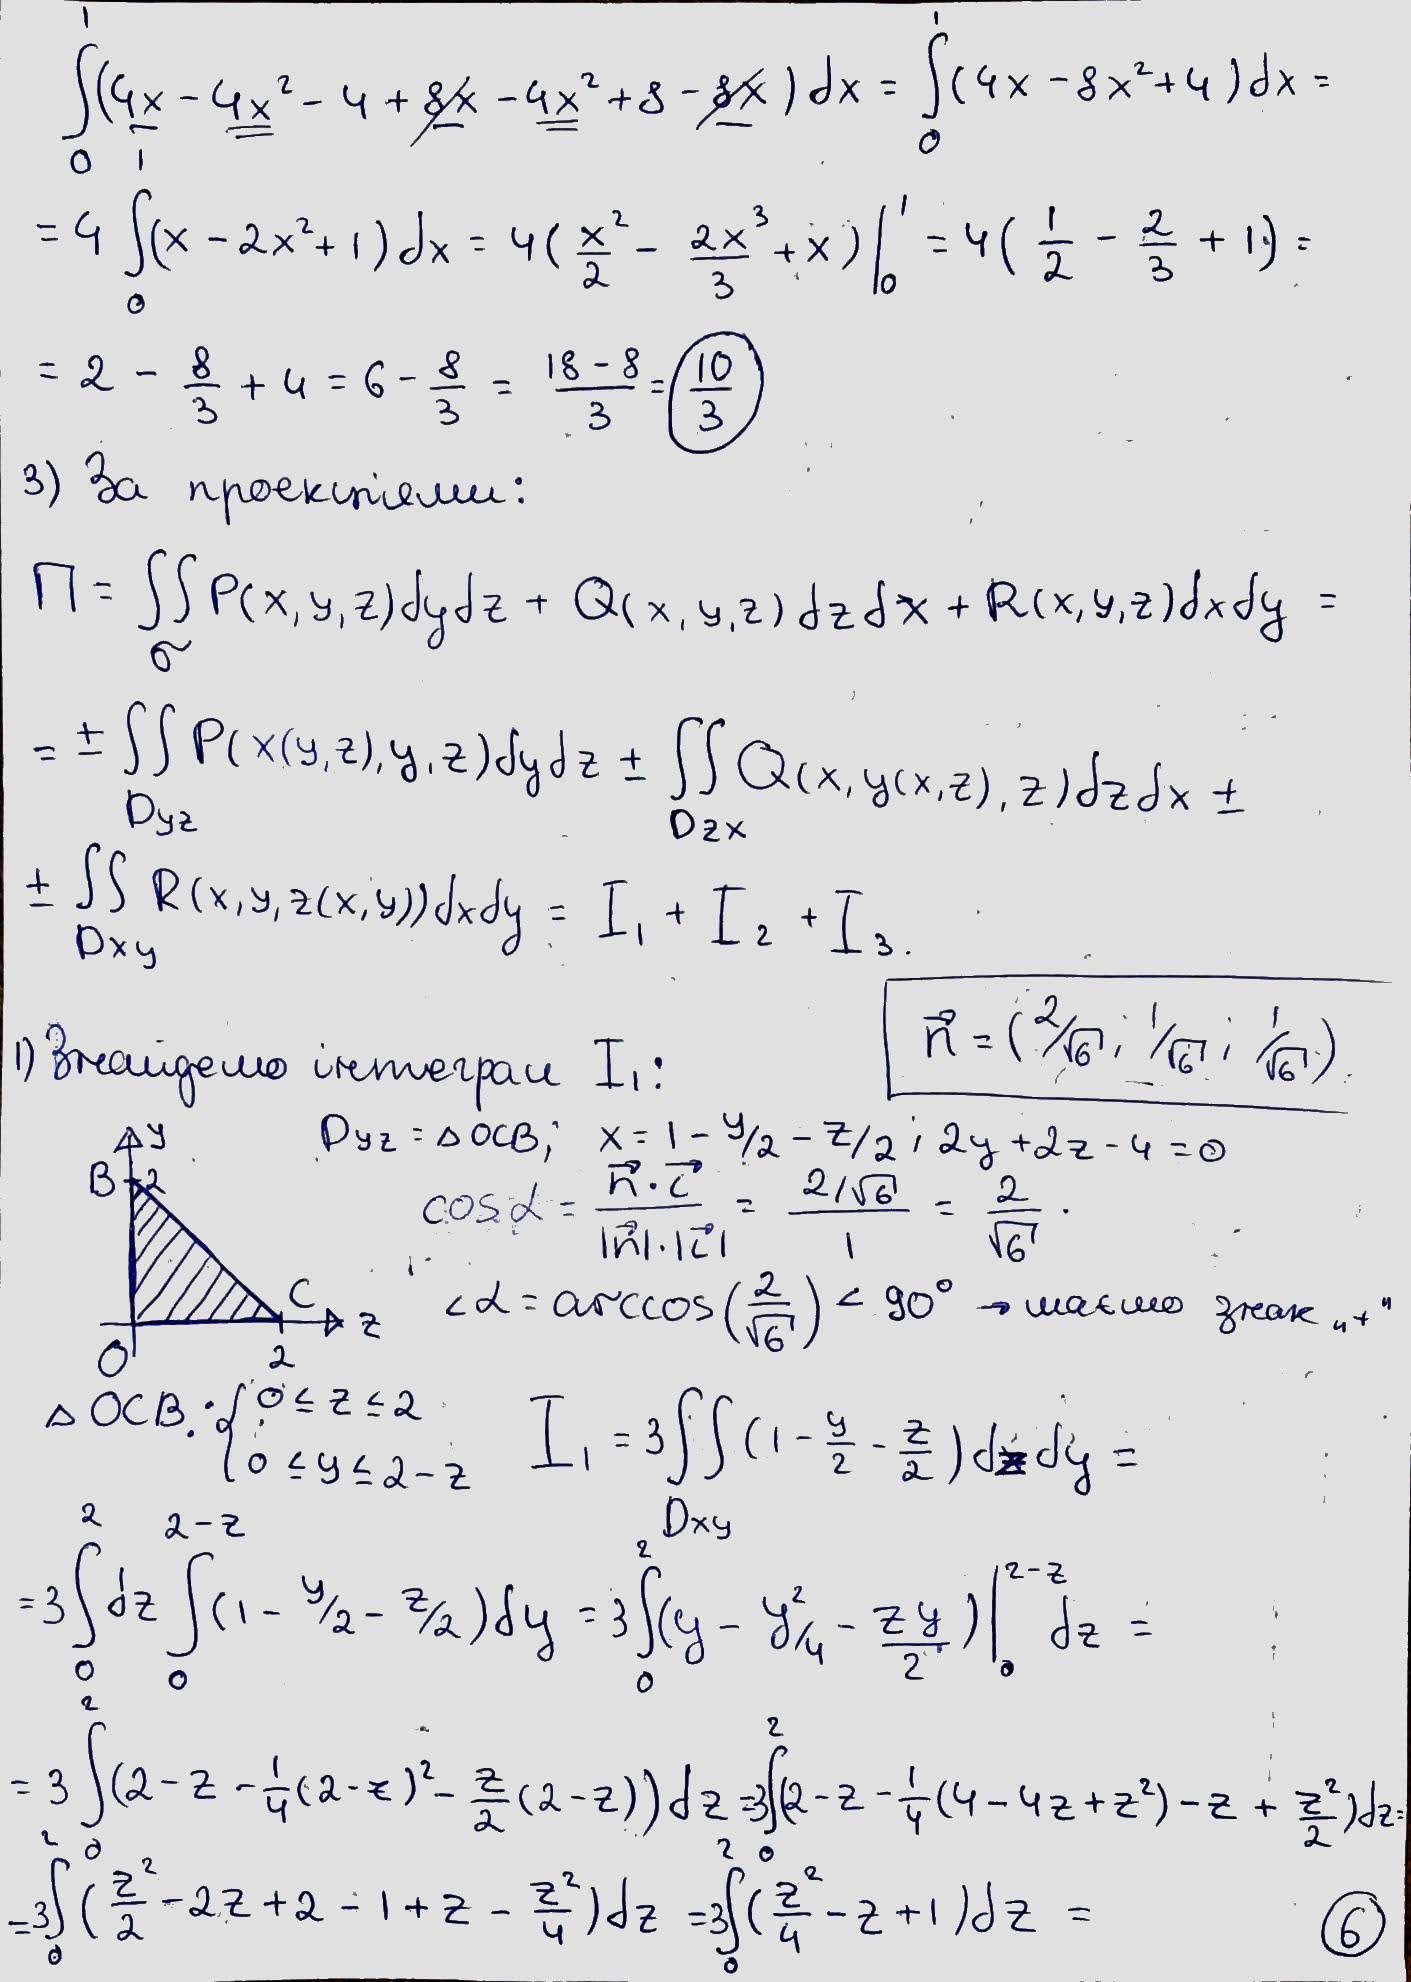 ∫₀¹(4x - 4x² - 4 + 8x - 4x² + 8 - 8x)dx = ∫₀¹(4x - 8x² + 4)dx =
= 4∫₀¹(x - 2x² + 1)dx = 4(x²/2 - 2x³/3 + x)|₀¹ = 4(1/2 - 2/3 + 1) =
= 2 - 8/3 + 4 = 6 - 8/3 = (18-8)/3 = 10/3
3) За проекціями:
П = ∬σ P(x,y,z)dydz + Q(x,y,z)dzdx + R(x,y,z)dxdy =
= ± ∬Dyz P(x(y,z),y,z)dydz ± ∬Dzx Q(x,y(x,z),z)dzdx ±
± ∬Dxy R(x,y,z(x,y))dxdy = I₁ + I₂ + I₃.
n⃗ = (2/√6; 1/√6; 1/√6)
1) Знайдемо інтеграл I₁:
Dyz = △OCB; x = 1 - y/2 - z/2; 2y + 2z - 4 = 0
y
B 2
C
z
O 2
cosα = n⃗·i⃗/|n⃗|·|i⃗| = (2/√6)/1 = 2/√6.
<α = arccos(2/√6) < 90° → маємо знак „+"
△OCB: { 0 ≤ z ≤ 2
0 ≤ y ≤ 2-z
I₁ = 3∬Dxy (1 - y/2 - z/2)dzdy =
= 3∫₀²dz ∫₀²⁻ᶻ(1 - y/2 - z/2)dy = 3∫₀²(y - y²/4 - zy/2)|₀²⁻ᶻ dz =
= 3∫₀²(2 - z - 1/4(2-z)² - z/2(2-z))dz = 3∫₀²(2 - z - 1/4(4 - 4z + z²) - z + z²/2)dz =
= 3∫₀²(z²/2 - 2z + 2 - 1 + z - z²/4)dz = 3∫₀²(z²/4 - z + 1)dz =
6